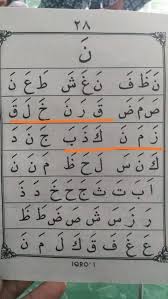 ٢٨
نَ
نَ ظَ فَ نَ غَ شَ طَ عَ نَ
صَ مَ ضَ قَ رَ نَ خَ لَ قَ
زَ مَ نَ كَ ذَ بَ جَ نَ دَ
كَ نَ سَ لَ حَ ظَ مَ نَ نَ
اَ بَ تَ ثَ جَ حَ خَ دَ ذَ
رَ زَ سَ شَ صَ ضَ طَ ظَ
عَ غَ فَ قَ كَ لَ مَ نَ
IQRO' 1